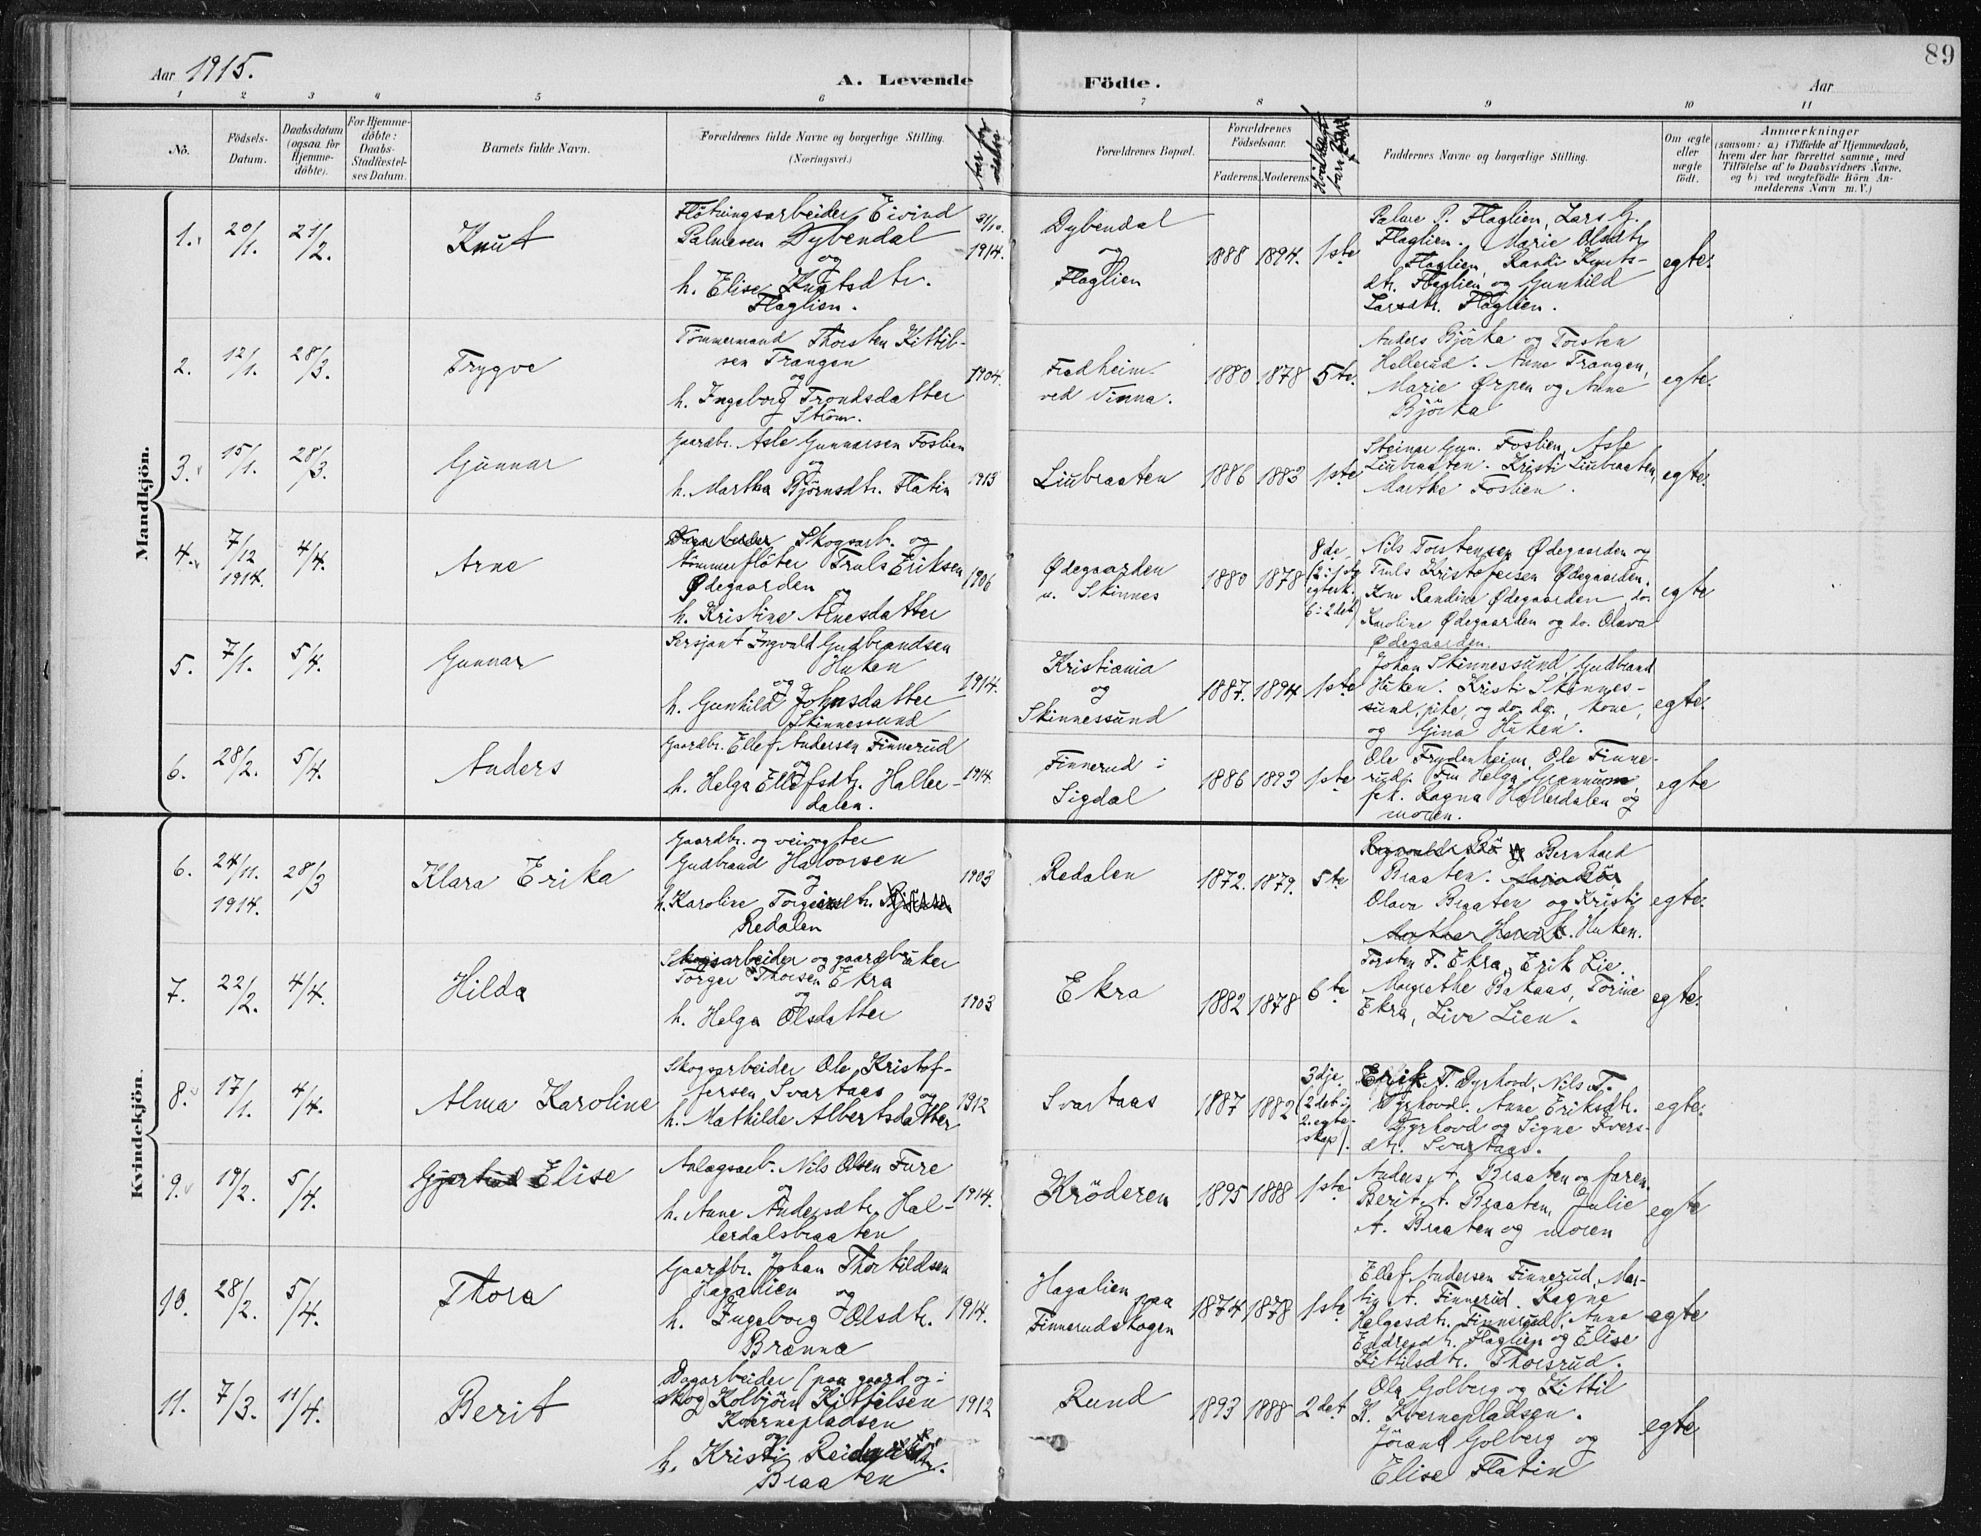 89
Aar 1915.
A. Levende Födte.
Aar
1 2 3 4 5 6 7 8 9 10 11
No.
Födsels-Datum.
Daabsdatum (ogsaa for Hjemme-döbte).
For Hjemme-döbte: Daabs-Stadfæstel-ses Datum.
Barnets fulde Navn.
Forældrenes fulde Navne og borgerlige Stilling. (Næringsvei.)
Forældrenes Bopæl.
Forældrenes Födselsaar.
Faderens. Moderens.
Faddernes Navne og borgerlige Stilling.
Om ægte eller uægte födt.
Anmærkninger
(saasom: a) i Tilfælde af Hjemmedaab, hvem der har forrettet samme, med Tilföielse af to Daabsvidners Navne, og b) ved uægtefödte Börn An-melderens Navn m. V.)
Mandkjön.
1. 20/1. 21/2. Knut
Flötningsarbeider Eivind
Palmesen Dybendal
og
h. Elise Knutsdtr.
Flaglien.
31/10. 1914.
Dybendal
og
Flaglien
1888 1894. 1ste
Palme P. Flaglien, Lars G.
Flaglien. Marie Olsdtr.
Flaglien, Randi Knuts-
dtr. Flaglien og Gunhild
Larsdtr. Flaglien.
egte.
2. 12/1. 28/3. Trygve
Tömmermand Thorsten Kittil-
sen Trangen
og
h. Ingeborg Trondsdatter
Ström.
1904.
Fredheim
ved Vinna.
1880 1878 5te.
Anders Björke og Torsten
Hallerud. Anne Trangen,
Marie Ørpen og Anne
Björka
egte.
3. 15/1. 28/3. Gunnar
Gaardbr. Asle Gunnarsen Foslien
og
h. Martha Björnsdtr. Flatin
1913
Liubraaten
1886 1883 1ste
Steinar Gun. Foslien, Asle
Liubraaten. Kristi Liubraaten,
Marthe Foslien.
egte.
4. 7/12 1914. 4/4. Arne
Skogsarb. og
tömmerflöter Truls Eriksen
Ødegaarden
og
h. Kristine Arnesdatter
1906
Ødegaarden
u. Skinnes
1880 1878
8de
(2 i 1ste
egtesk.
6 i 2det)
Nils Torstensen Ødegaarden og
Truls Kristofersen Ødegaarden.
Kone Randine Ødegaarden, do.
Karoline Ødegaarden og do. Olava
Ødegaarden.
egte
5. 7/1. 5/4. Gunnar
Sersjant Ingvald Gudbrandsen
Huken
og
h. Gunhild Johnsdatter
Skinnessund
1914.
Kristiania
og
Skinnessund
1887. 1894 1ste
Johan Skinnessund, Gudbrand
Huken. Kristi Skinnes-
sund, pike, og do. do., kone,
og Gina Huken.
egte.
6. 28/2. 5/4. Anders
Gaardbr. Ellef Andersen Finnerud
og
h. Helga Ellefsdtr. Haller-
dalen.
1914.
Finnerud i
Sigdal
1886 1893 1ste
Ole Frydenheim, Ole Finne-
rud. Fru Helga Grønnum,
frk. Ragna Hallerdalen og
moren.
egte
Kvindekjön.
6. 24/11. 1914. 28/3 Klara Erika
Gaardbr. og veivogter
Gudbrand Halvorsen
og
h. Karoline
Redalen
1903
Redalen
1872. 1879. 5te
Bernhard
Braaten.
Olava Braaten og Kristi
Huken.
egte.
7. 22/2. 4/4. Hilda
Skogsarbeider og gaardbruker
Torger Thorsen Ekra
og
h. Helga Olsdatter
1903
Ekra
1882 1878 6te
Torsten T. Ekra, Erik Lie.
Margrethe Bakaas, Torine
Ekra, Live Lien.
egte.
8. 17/1. 4/4. Alma Karoline
Skogsarbeider Ole Kristof-
fersen Svartaas og
h. Mathilde Albertsdatter
1912
Svartaas
1887 1882
3dje
(2det i
2. egte-
skap).
Erik T. Dyrhovd, Nils T.
Dyrhovd. Anne Eriksdtr.
Dyrhovd og Signe Ivers-
dtr. Svartaas.
egte.
9. 19/2. 5/4. Gjertrud Elise
Anlægsarb. Nils Olsen Fure
og
h. Anne Andersdtr. Hal-
lerdalsbraaten
1914.
Kröderen
1895 1888 1ste
Anders A. Braaten og faren.
Berit A. Braaten, Julie
A. Braaten og moren
egte
10. 28/2. 5/4. Thora
Gaardbr. Johan Thorkildsen
Hagalien og
h. Ingeborg Olsdtr.
Brænna
1914.
Hagalien paa
Finnerudskogen
1874 1878 1ste
Ellef Andersen Finnerud, Mar-
tin A. Finnerud. Ragna
Helgesdtr. Finnerud, Anne
Endresdtr. Flaglien og Elise
Kittilsdtr. Thorsrud.
egte
11. 7/3. 11/4. Berit
Dagarbeider (paa gaard og i
skog) Kolbjörn Kittilsen
Kvernepladsen
og
h. Kristi
Braaten
1912
Rund
1893 1888 2det
Ola Golberg og Kittil
K. Kvernepladsen.
Jörand Golberg og
Elise Flatin
egte